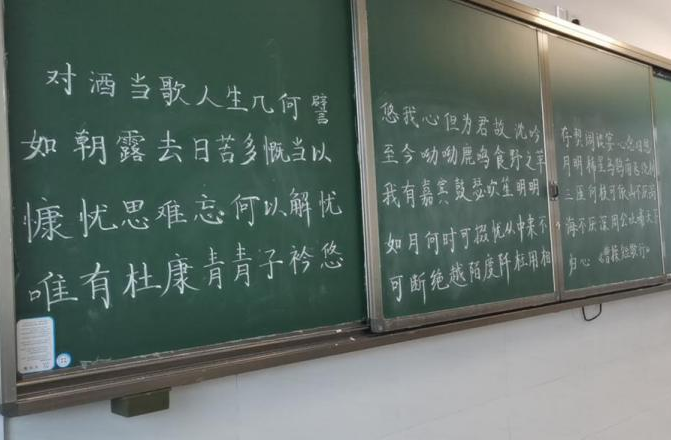 对酒当歌人生几何譬
如朝露去日苦多慨当以
慷忧思难忘何以解忧
唯有杜康青青子衿悠
悠我心但为君故沈吟
至今呦呦鹿鸣食野之苹
我有嘉宾鼓瑟吹笙明明
如月何时可掇忧从中来不
可断绝越陌度阡枉用相
存契阔谈宴心念旧恩
月明稀星乌鹊南飞绕树
三匝何枝可依山不厌高
海不厌深周公吐哺天下
归心《曹操短歌行》